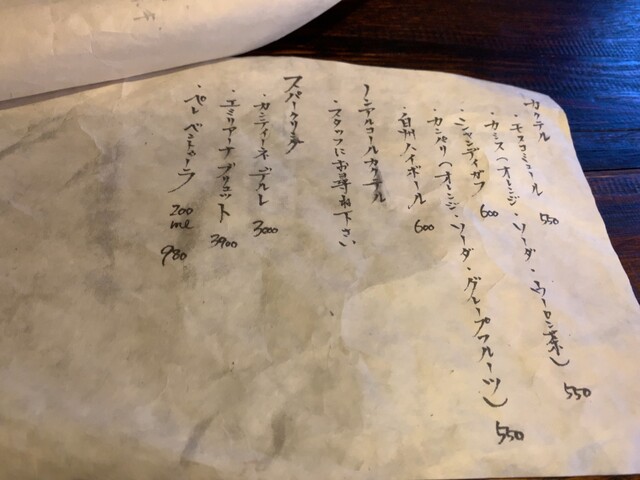 カクテル
・モスコミュール 550
・カシス(オレンジ・ソーダ・ウーロン茶) 550
・シャンディガフ 600
・カンパリ(オレンジ・ソーダ・グレープフルーツ) 550
・白州ハイボール 600
ノンアルコールカクテル
・スタッフにお尋ね下さい
スパークリング
・カンティーネ デルレ 3000
・エミリアーナ ブリュット 3900
・ペレ ベントゥーラ 200ml 980